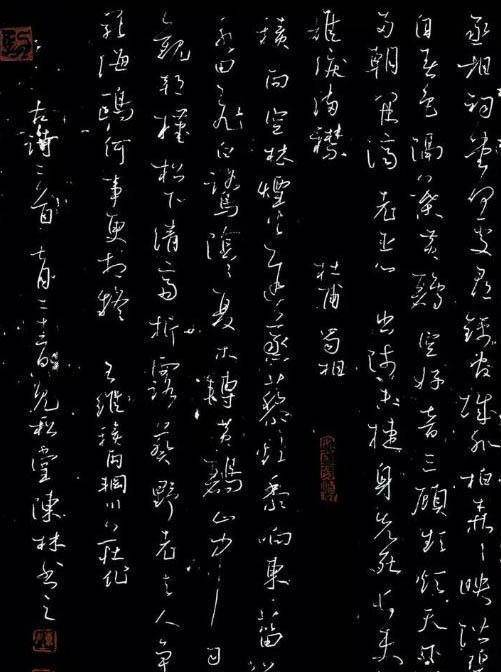 丞相祠堂何處尋錦官城外柏森森映階碧
自春色隔葉黄鸝空好音三顧頻煩天下
兩朝開濟老臣心出師未捷身先死長
雄淚滿襟 杜甫 蜀相
積雨空林煙火遲蒸藜炊黍餉東菑
水田飛白鷺陰陰夏木囀黄鸝山中
觀朝槿松下清齋折露葵野老與人爭
海鷗何事更相疑 王維積雨輞川莊作
古詩二首 松堂陳林書之